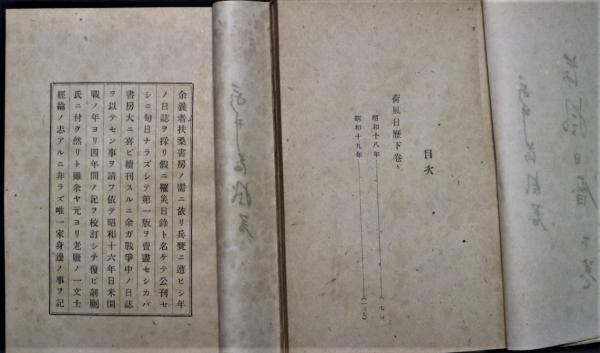 目次
荷風日歷下卷
昭和十八年
昭和十九年
余曩者扶桑書房ノ需ニ依リ兵燹ニ遭ヒシ年
ノ日誌ヲ採リ假ニ罹災日錄ト名ケテ公刊セ
シニ旬日ナラズシテ第一版ヲ賣盡セシカバ
書房大ニ喜ビ續刊スルニ余ガ戰爭中ノ日誌
ヲ以テセン事ヲ請フ依テ昭和十六年日米開
戰ノ年ヨリ四年間ノ記ヲ校訂シテ復ビ剞劂
氏ニ付ク然リト雖余ヤ元ヨリ老廢ノ一文士
經綸ノ志アルニ非ラズ唯一家身邊ノ事ヲ記